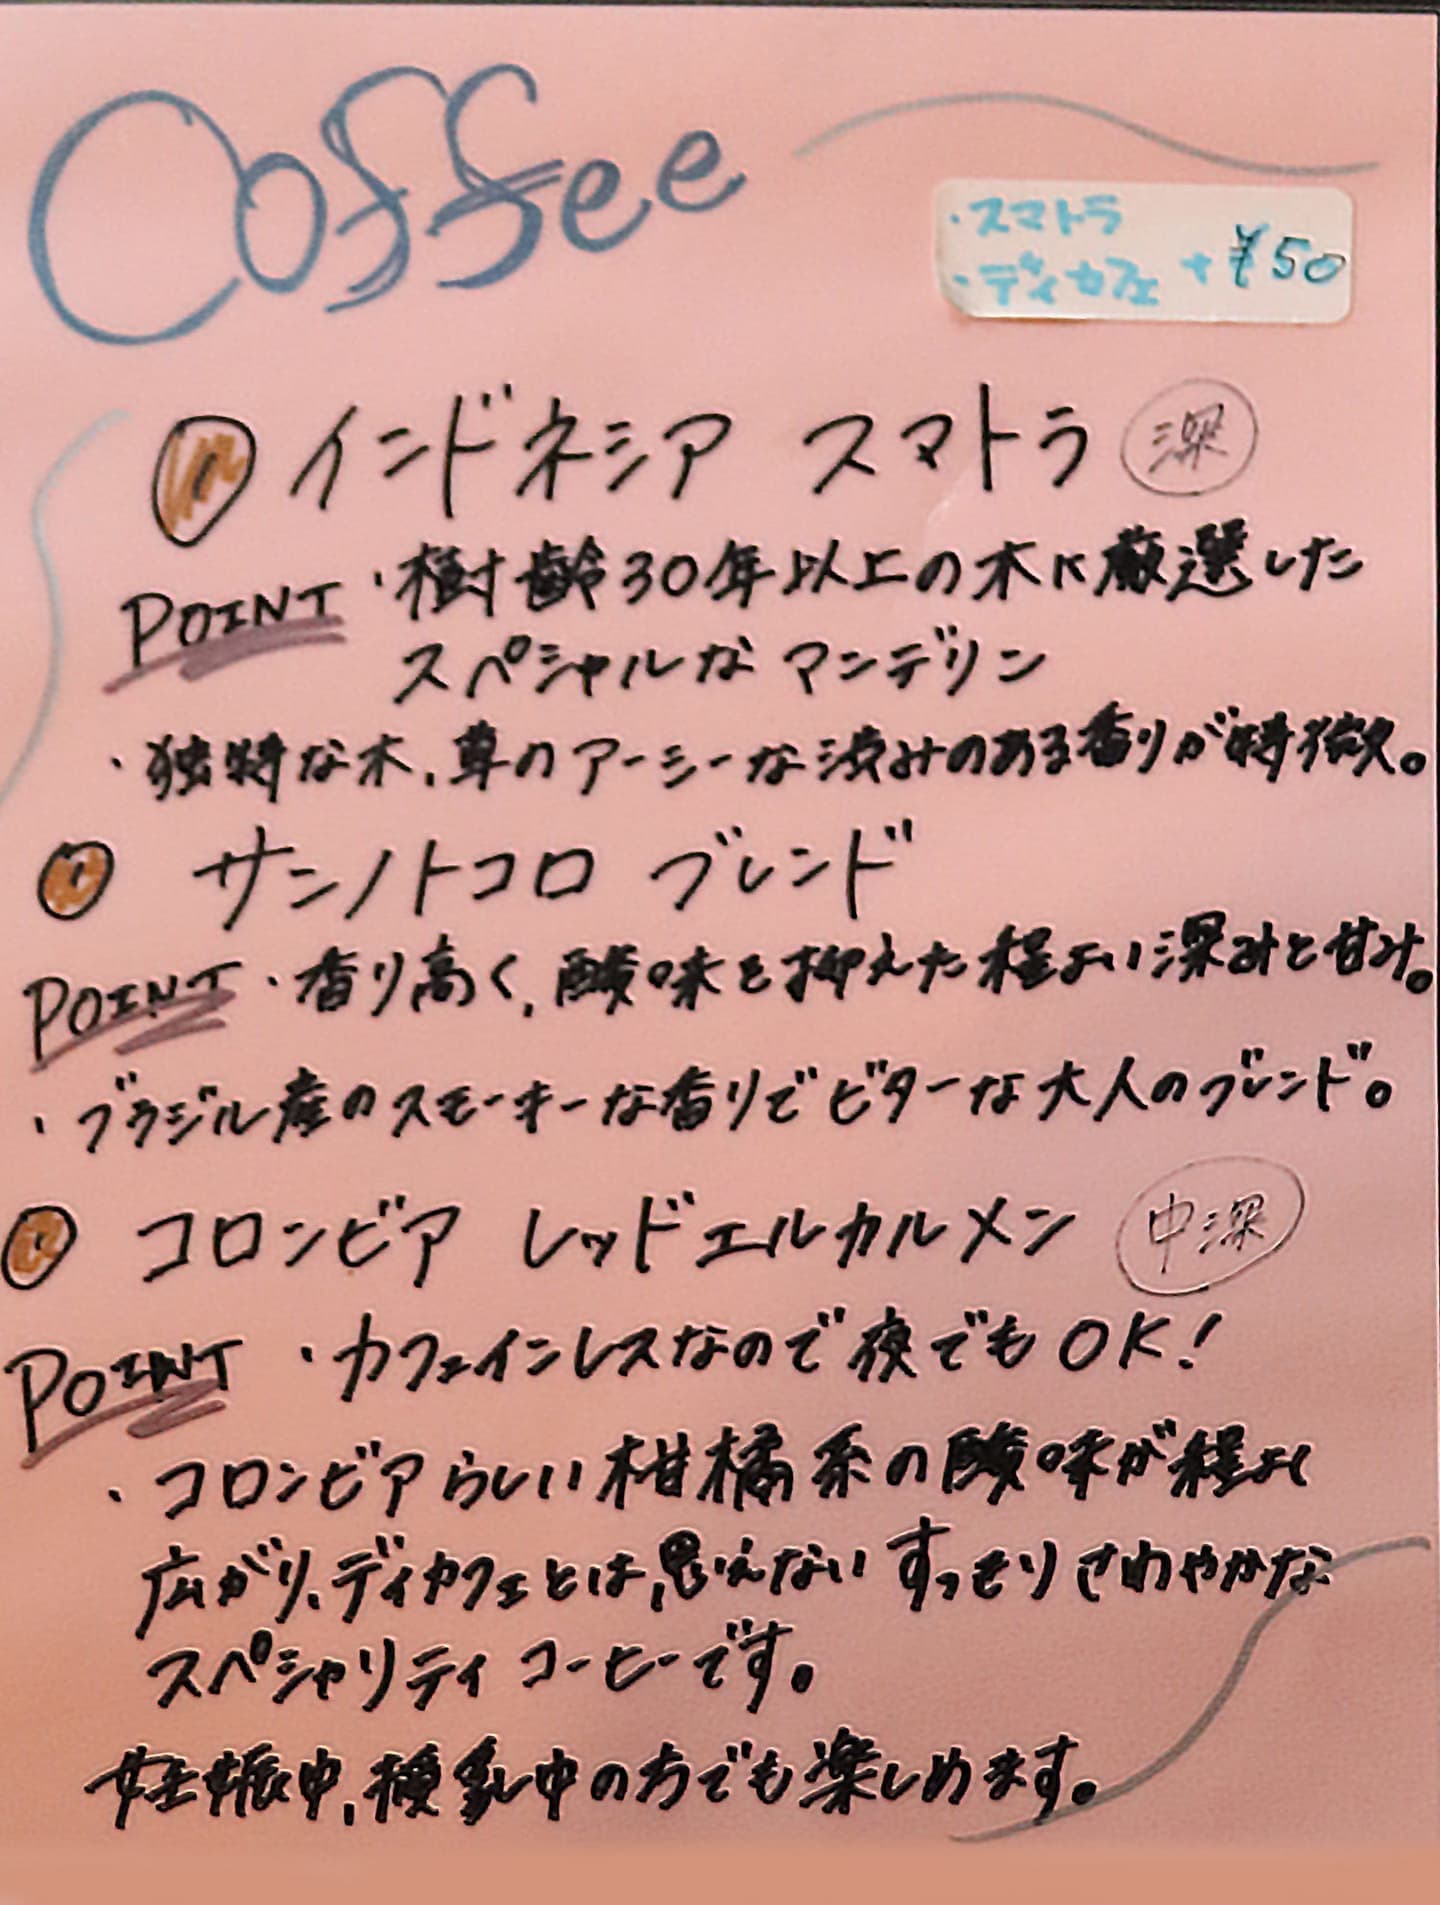 Coffee
・スマトラ
・ディカフェ +¥50
インドネシア スマトラ 深
POINT ・樹齢30年以上の木に厳選した
スペシャルな マンデリン
・独特な木、草のアーシーな渋みのある香りが特徴。
サンノトコロ ブレンド
POINT ・香り高く、酸味を抑えた程よい深みと甘み。
・ブラジル産のスモーキーな香りでビターな大人のブレンド。
コロンビア レッドエルカルメン 中深
POINT ・カフェインレスなので夜でもOK!
・コロンビアらしい柑橘系の酸味が程よく
広がり、ディカフェとは、思えないすっきりさわやかな
スペシャリティ コーヒーです。
妊娠中、授乳中の方でも楽しめます。